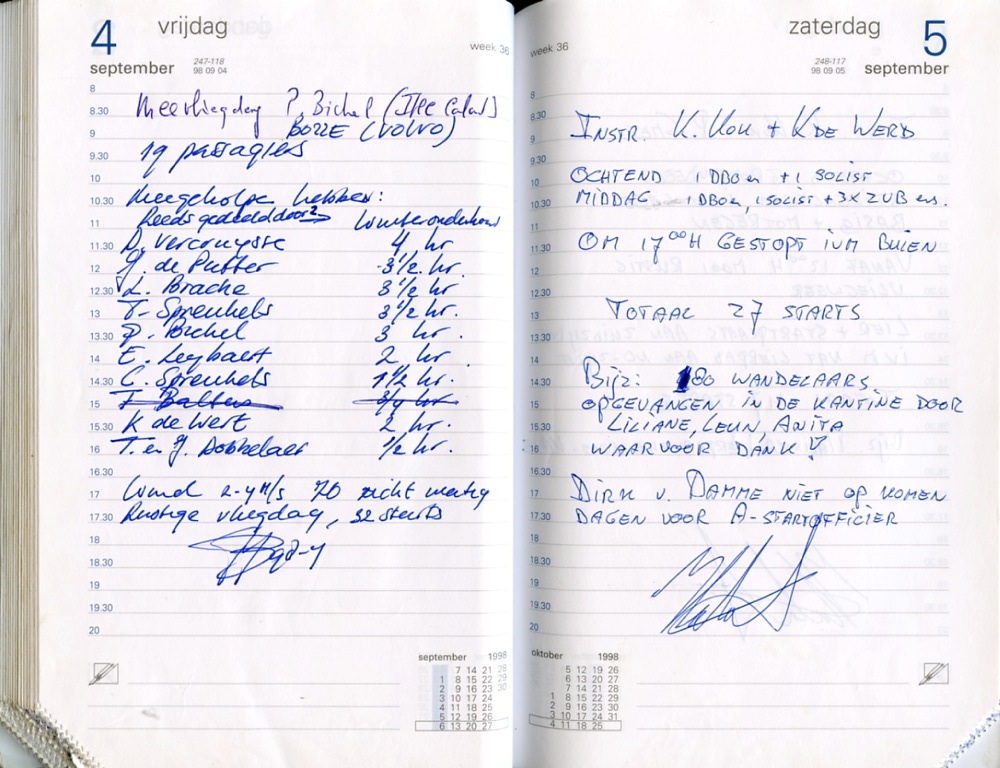 4 vrijdag
week 36
september
247-118
98 09 04
8
8.30 Meevliegdag P. Bichel (
9 BOZZE (VOLVO)
9.30 19 passagiers
10 Meegeholpe hebben:
10.30 Reeds gedeeld door 2
11 D. Vercruysse 4 hr
11.30 J. de Putter 3 1/2 hr.
12 L. Brache 3 1/2 hr.
12.30 T. Sprenkels 3 1/2 hr.
13 P. Bichel 3 hr.
13.30 E. Leybaert 2 hr
14 C. Sprenkels 1 1/2 hr.
14.30 T Balters 3/4 hr
15 K de Wert 2 hr.
15.30 T. en J. Dobbelaer 1/2 hr.
16
16.30
17 Wind 2-4 M/s 70 zicht matig
17.30 Rustige vliegdag, 32 starts
18
18.30
19
19.30
20
september 1998
7 14 21 28
1 8 15 22 29
2 9 16 23 30
3 10 17 24
4 11 18 25
5 12 19 26
6 13 20 27
zaterdag 5
week 36
september
248-117
98 09 05
8
8.30 INSTR. K. KOK + K DE WERD
9
9.30
10 OCHTEND 1 DBO en + 1 SOLIST
10.30 MIDDAG 1 DBO en, 1 SOLIST + 3X ZUB ers.
11
11.30 OM 17 00 H GESTOPT IVM BUIEN
12
12.30
13 TOTAAL 27 STARTS
13.30
14
14.30 BIJZ: 180 WANDELAARS
15 OPGEVANGEN IN DE KANTINE DOOR
15.30 LILIANE, LEUN, ANITA
16 WAARVOOR DANK!
16.30
17 DIRK V. DAMME NIET OP KOMEN
17.30 DAGEN VOOR A-STARTOFFICIER
18
18.30
19
19.30
20
oktober 1998
5 12 19 26
6 13 20 27
7 14 21 28
1 8 15 22 29
2 9 16 23 30
3 10 17 24 31
4 11 18 25